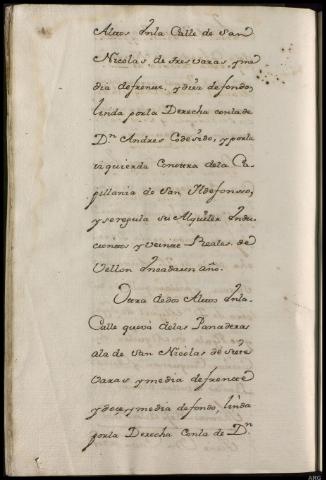 Altos Enla Calle de San
Nicolas de tres varas, y me
dia de frente, y diez de fondo,
linda porla Derecha conla de
Dn Andres Codesido, y porla
izquierda Conotra dela Ca-
pillania de San Ildefonso,
y seregula su Alquiler Endu
cientos y veinte Reales de
Vellon Encadaun año.
Otra dedos Altos Enla
Calle queva delas Panaderas
ala de San Nicolas de siete
varas y media de frente
y doce y media de fondo, linda
porla Derecha Conla de Dn
ARG